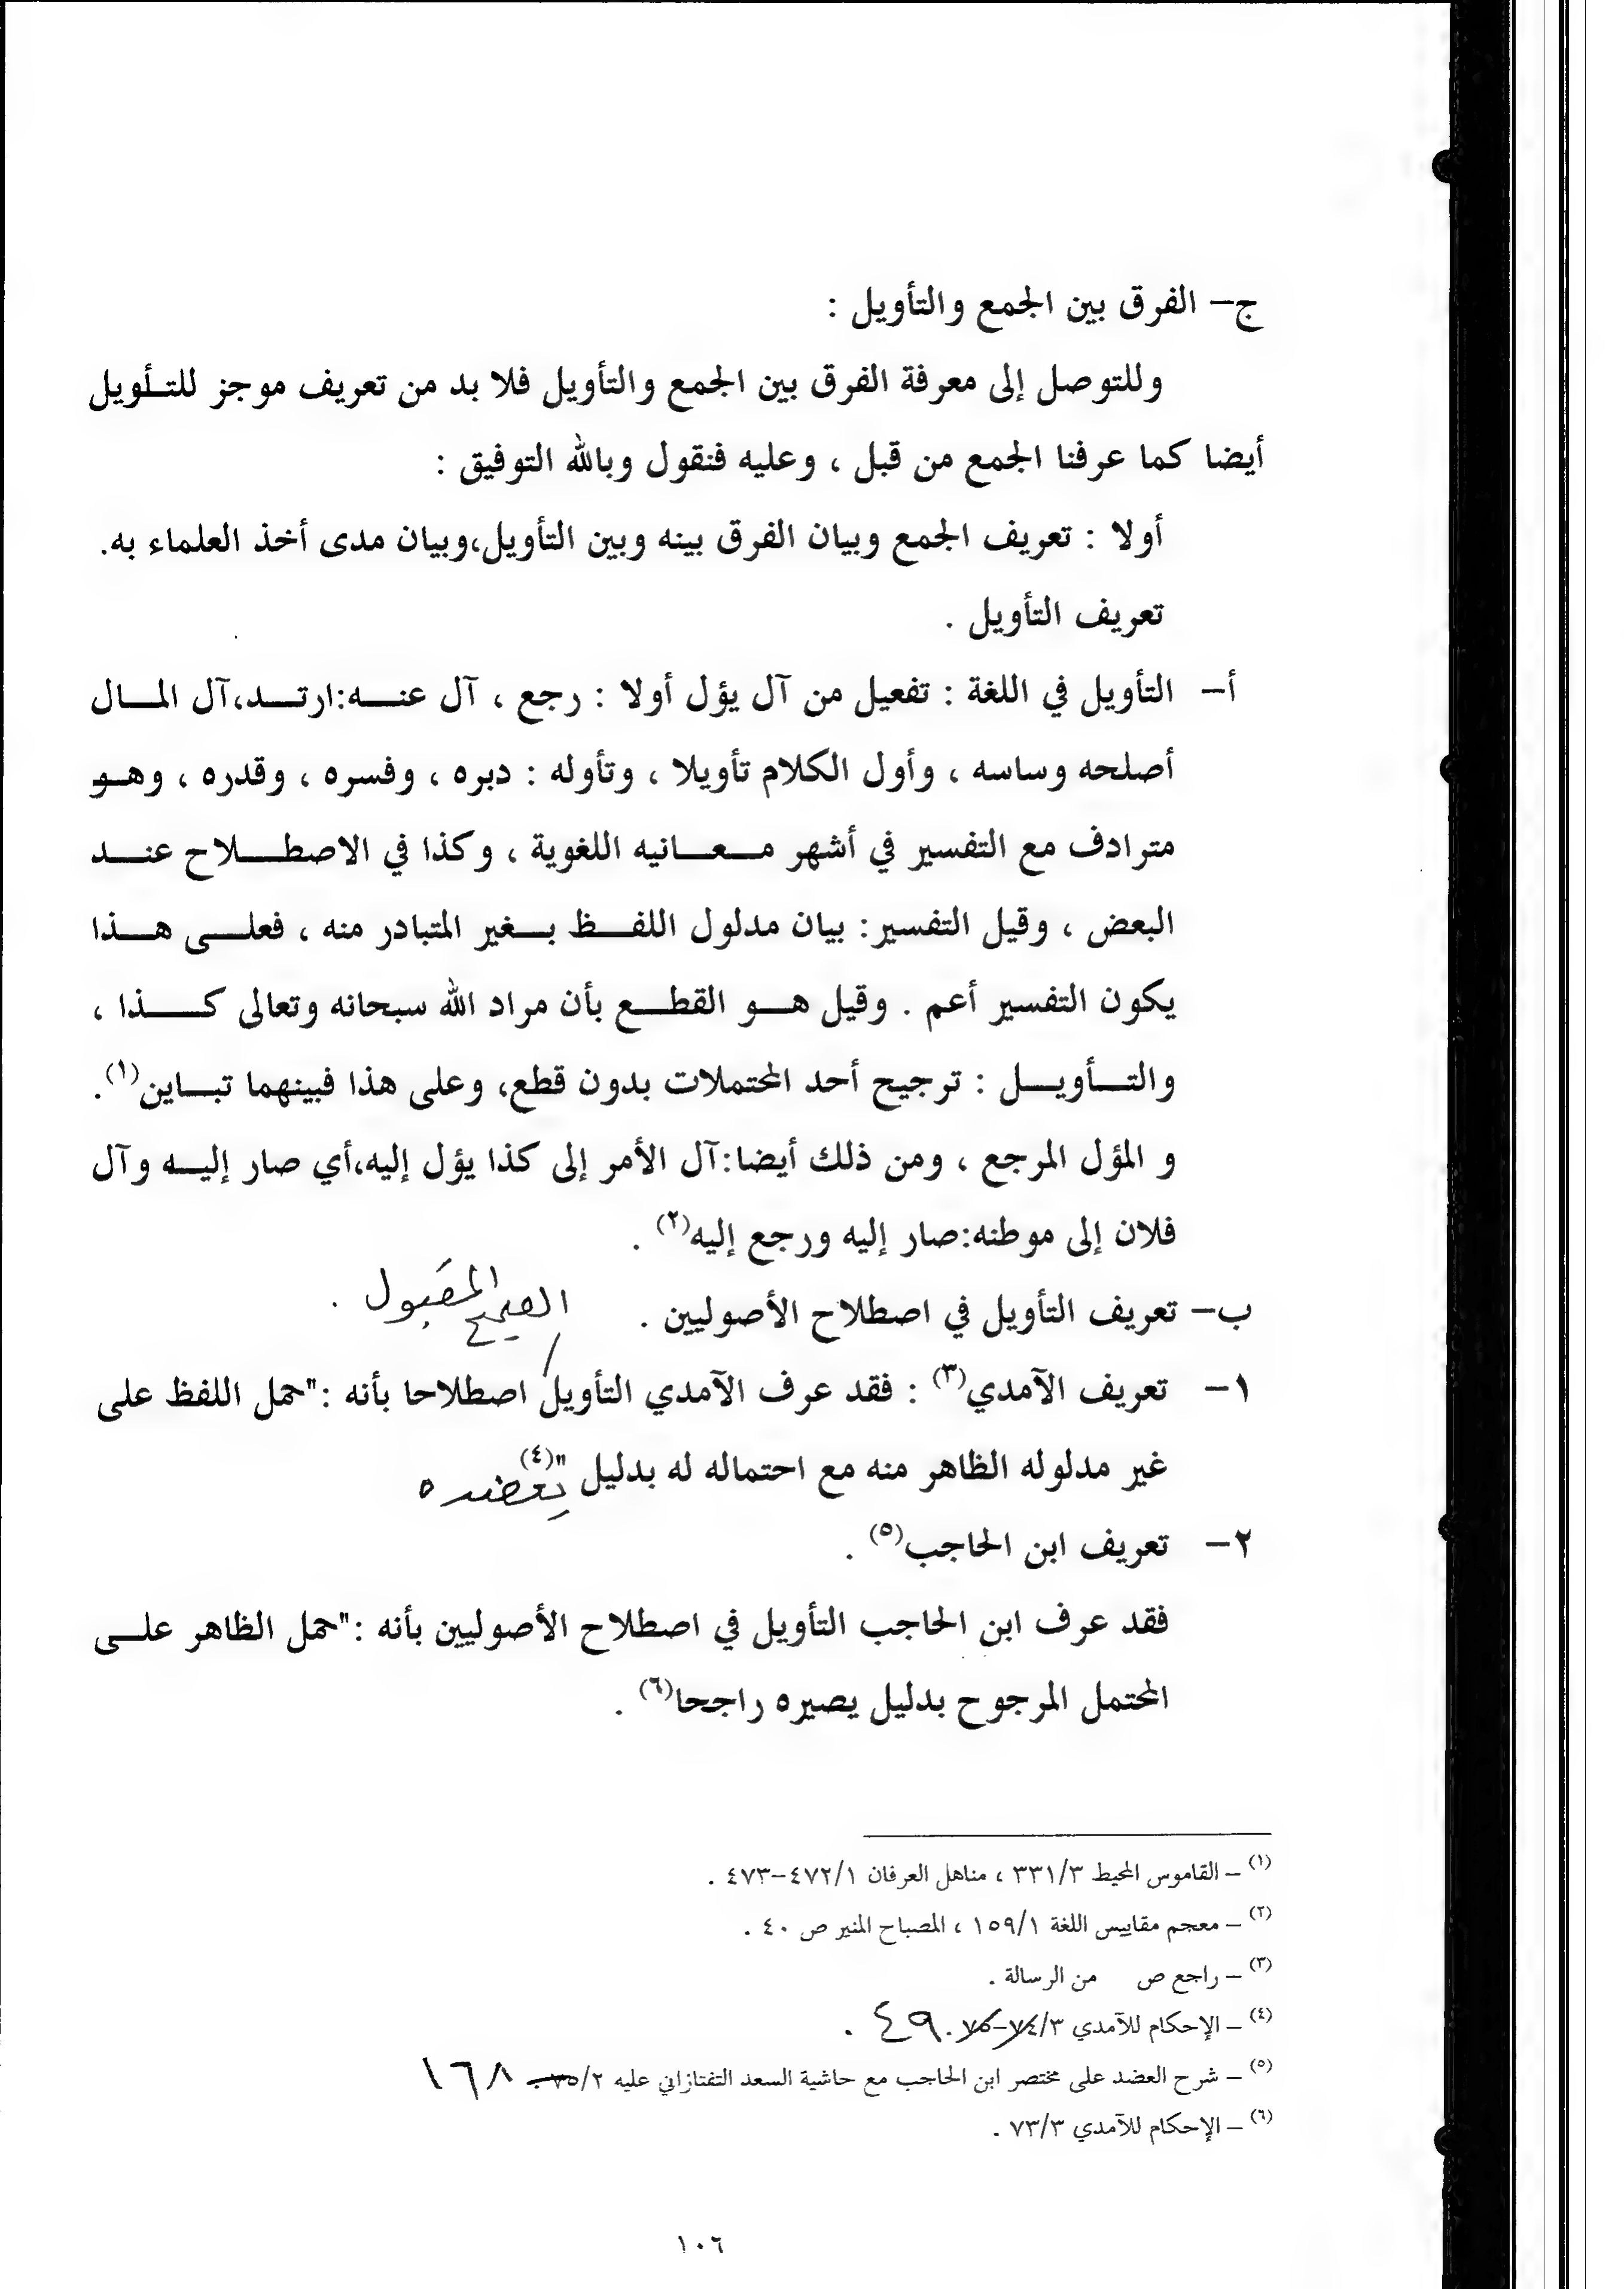 ج– الفرق بين الجمع والتأويل :
وللتوصل إلى معرفة الفرق بين الجمع والتأويل فلا بد من تعريف موجز للتأويل
أيضا كما عرفنا الجمع من قبل ، وعليه فنقول وبالله التوفيق :
أولا : تعريف الجمع وبيان الفرق بينه وبين التأويل،وبيان مدى أخذ العلماء به.
تعريف التأويل .
أ– التأويل في اللغة : تفعيل من آل يؤل أولا : رجع ، آل عنه:ارتد،آل المال
أصلحه وساسه ، وأول الكلام تأويلا ، وتأوله : دبره ، وفسره ، وقدره ، وهو
مترادف مع التفسير في أشهر معانيه اللغوية ، وكذا في الاصطلاح عند
البعض ، وقيل التفسير: بيان مدلول اللفظ بغير المتبادر منه ، فعلى هذا
يكون التفسير أعم . وقيل هو القطع بأن مراد الله سبحانه وتعالى كذا ،
والتأويل : ترجيح أحد المحتملات بدون قطع، وعلى هذا فبينهما تباين(١).
و المؤل المرجع ، ومن ذلك أيضا:آل الأمر إلى كذا يؤل إليه،أي صار إليه وآل
فلان إلى موطنه:صار إليه ورجع إليه(٢) .
ب– تعريف التأويل في اصطلاح الأصوليين .
الصحيح المقبول .
١– تعريف الآمدي(٣) : فقد عرف الآمدي التأويل اصطلاحا بأنه :"حمل اللفظ على
غير مدلوله الظاهر منه مع احتماله له بدليل "(٤)
يعضده
٢– تعريف ابن الحاجب(٥) .
فقد عرف ابن الحاجب التأويل في اصطلاح الأصوليين بأنه :"حمل الظاهر على
المحتمل المرجوح بدليل يصيره راجحا(٦) .
(١) – القاموس المحيط ٣٣١/٣ ، مناهل العرفان ٤٧٢/١–٤٧٣ .
(٢) – معجم مقاييس اللغة ١٥٩/١ ، المصباح المنير ص ٤٠ .
(٣) – راجع ص من الرسالة .
(٤) – الإحكام للآمدي ٧٤/٣–٧٥. ٤٩ .
(٥) – شرح العضد على مختصر ابن الحاجب مع حاشية السعد التفتازاني عليه ٢/ ١٦٨
(٦) – الإحكام للآمدي ٧٣/٣ .
١٠٦